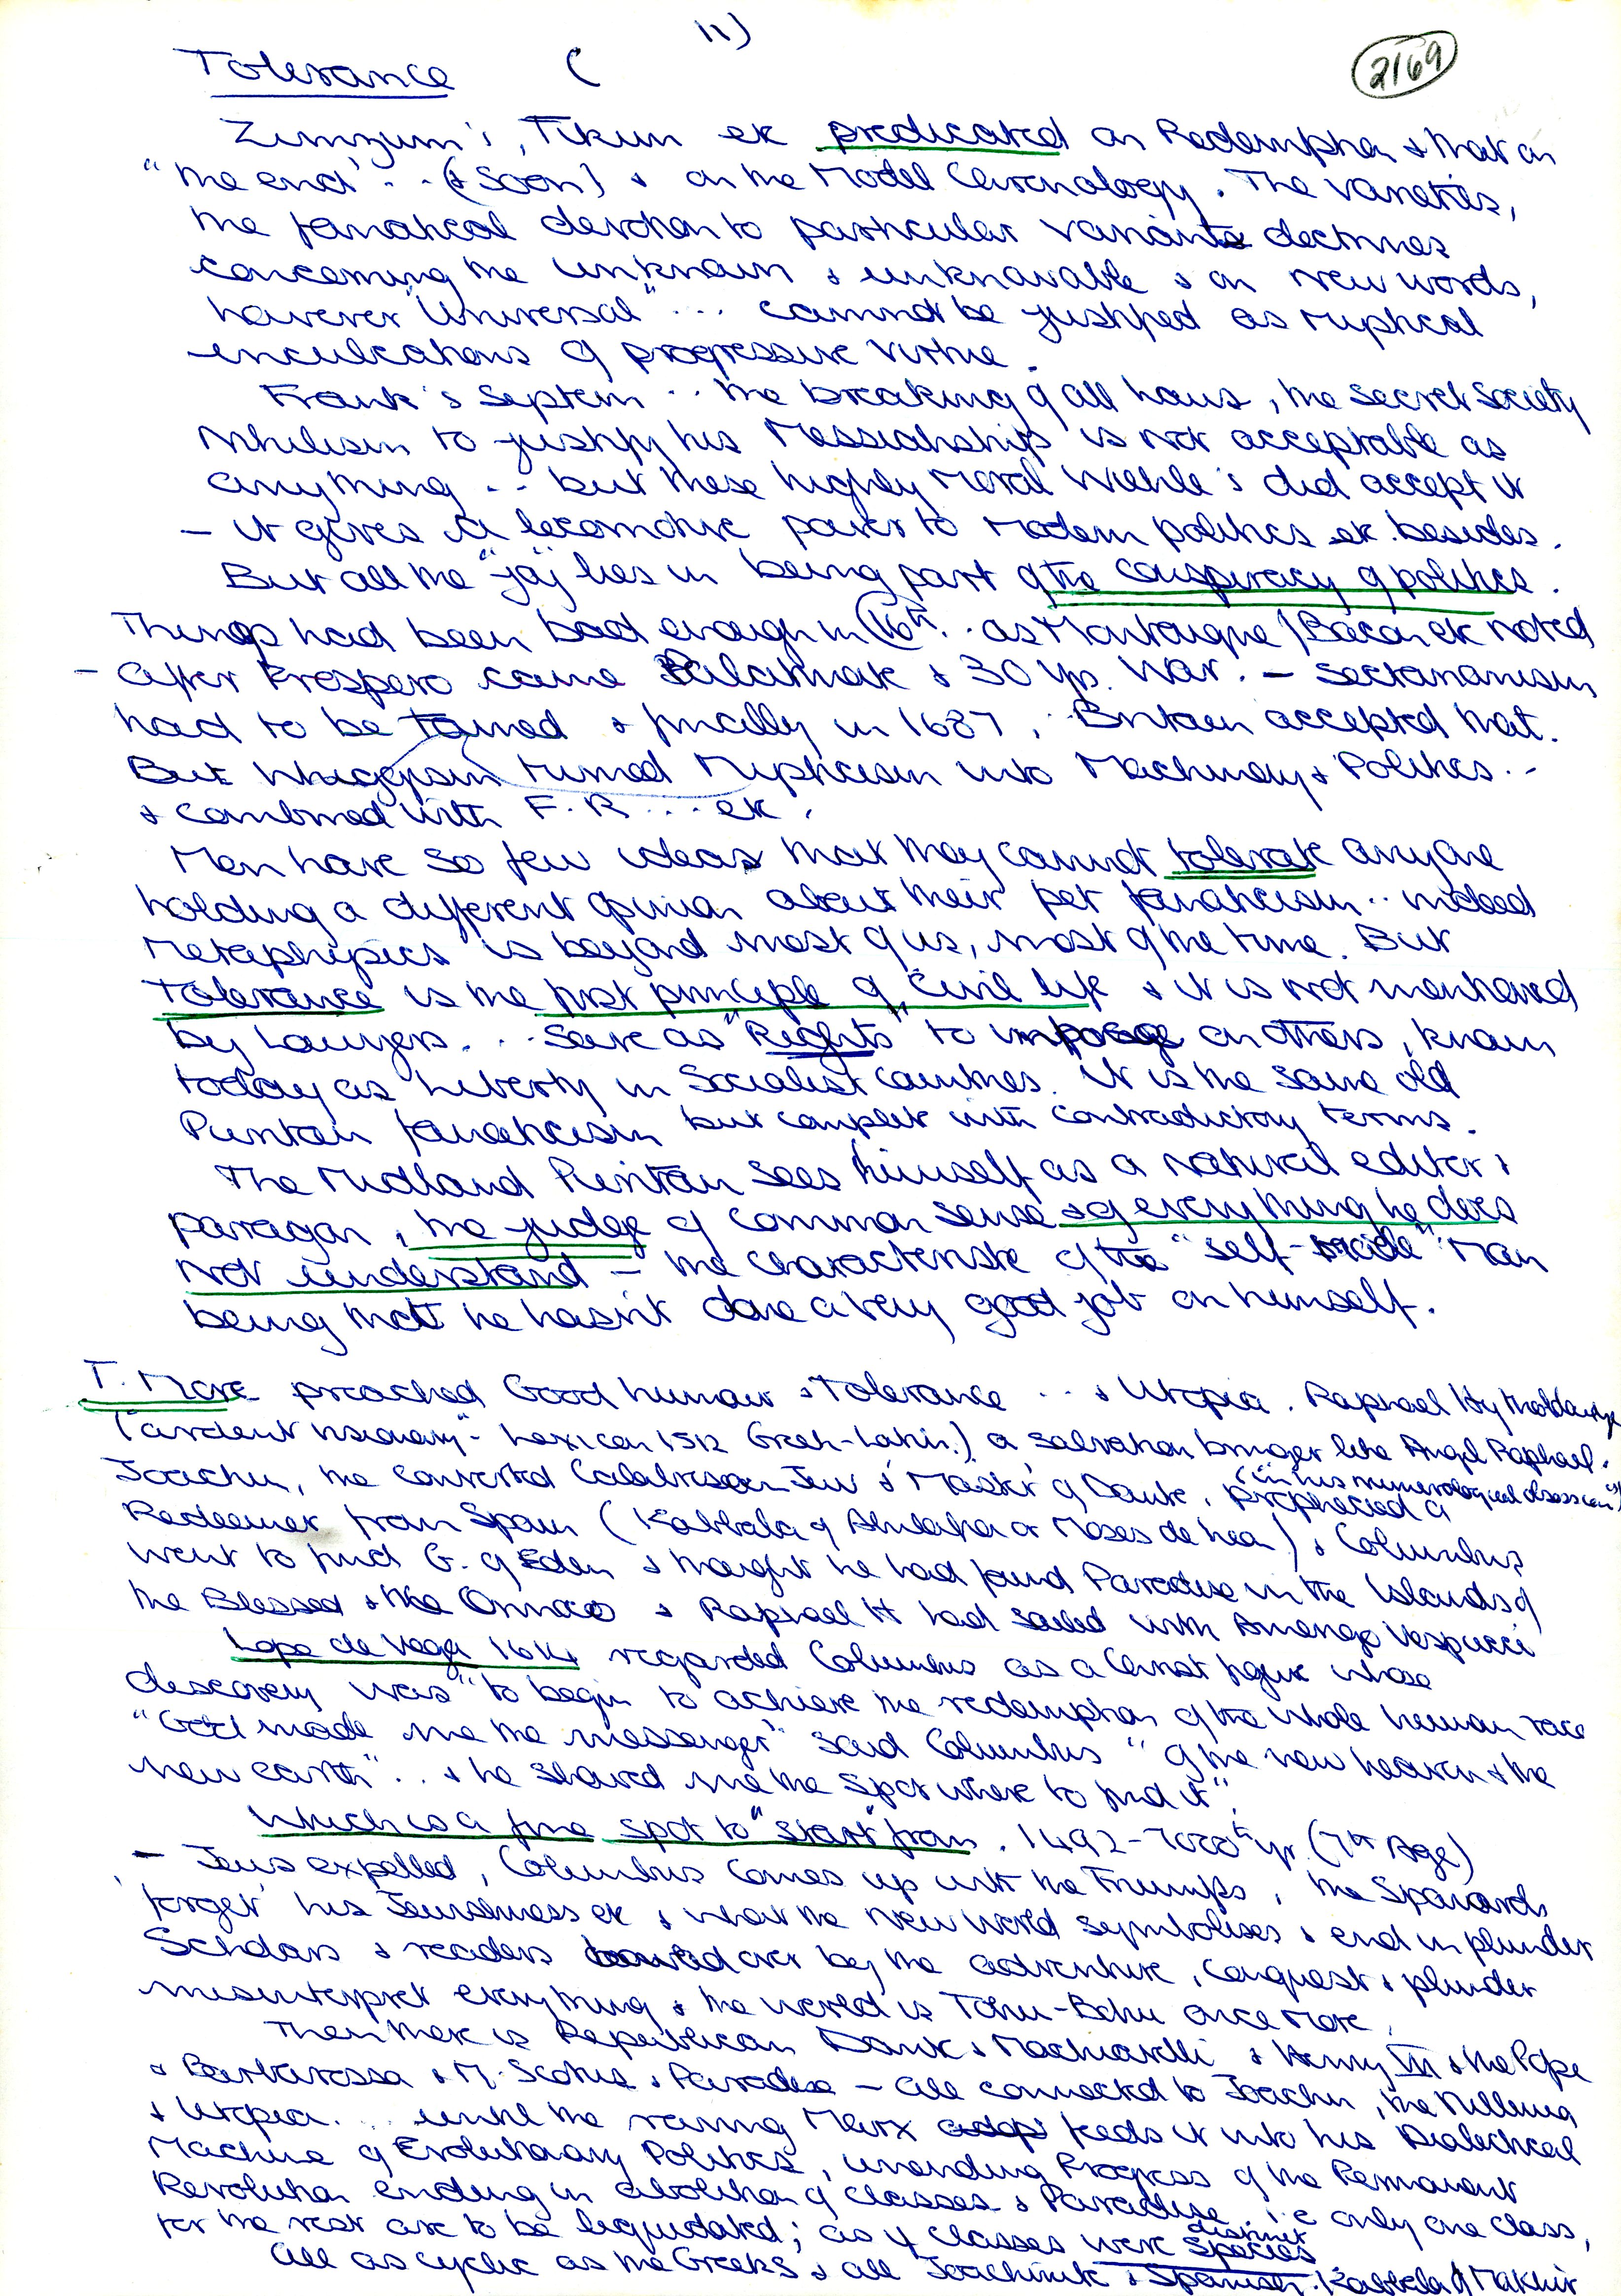 11)
2169
Tolerance (
Zimzum's, Tikun etc predicated on Redemption & that on
"the end" .. (& soon) & on the Model Chronology. The varieties,
the fanatical devotion to particular variants doctrines
concerning the unknown & unknowable & on new words,
however "Universal" ... cannot be justified as mystical
inculcations of progressive virtue.
Frank's System .. the breaking of all laws, the secret society
Nihilism to justify his Messiahship is not acceptable as
anything .. but these highly moral Wehle's did accept it
- it gives a locomotive power to modern politics etc. besides.
But all the "joy" lies in being part of the conspiracy of politics.
Things had been bad enough in 16th .. as Montaigne / Bacon etc noted
- after Prospero came Palatinate & 30 Yrs. War. - Sectarianism
had to be tamed & finally in 1687, Britain accepted that.
But Whiggism turned Mysticism into Machinery & Politics ..
& combined with F.R ... etc.
Men have so few ideas that they cannot tolerate anyone
holding a different opinion about their pet fanaticism .. indeed
Metaphysics is beyond most of us, most of the time. But
Tolerance is the first principle of Civil life & it is not mentioned
by Lawyers ... save as "Rights" to impose on others, known
today as Liberty in Socialist Countries. It is the same old
Puritan fanaticism but complete with contradictory terms.
The Midland Puritan sees himself as a natural editor &
paragon, the judge of common sense & of everything he does
not understand - the characteristic of the "self-made" Man
being that he hasn't done a very good job on himself.
T. More preached Good humour & Tolerance .. & Utopia. Raphael Hythloday
("ardent visionary" - Lexicon 1512 Greek-Latin.) a salvation bringer like Angel Raphael.
Joachim, the converted Calabrian Jew & 'Master' of Dante, (in his numerological obsession) prophecied a
Redeemer from Spain (Kabbala of Abulafia or Moses de Leon) & Columbus
went to find G. of Eden & thought he had found Paradise in the Islands of
the Blessed & the Orinoco & Raphael H had sailed with Amerigo Vespucci
Lope de Vega 1614 regarded Columbus as a Christ figure whose
discovery was "to begin to achieve the redemption of the whole human race
"God made me the messenger" said Columbus "of the new heaven & the
new earth" .. & he showed me the spot where to find it".
Which is a fine spot to "start" from. 1492 - 7000th yr. (7th Age)
- Jews expelled, Columbus comes up with the Trumps, the Spaniards
'forget' his Jewishness etc & what the New World symbolises & end in plunder
Scholars & readers bowled over by the adventure, conquest & plunder
misinterpret everything & the world is Tohu-Bohu once more.
Then there is Republican Dante & Machiavelli & Henry VII & the Pope
& Barbarossa & M. Scotus & Paradise - all connected to Joachim, the Millennia
& Utopia ... until the raving Marx feeds it into his Dialectical
Machine of Evolutionary Politics, unending Progress of the Permanent
Revolution ending in abolition of classes & Paradise. i.e only one class,
for the rest are to be liquidated; as if classes were distinct Species
All as cyclic as the Greeks & all Joachimite & Spanish. Kabbala of Makhir